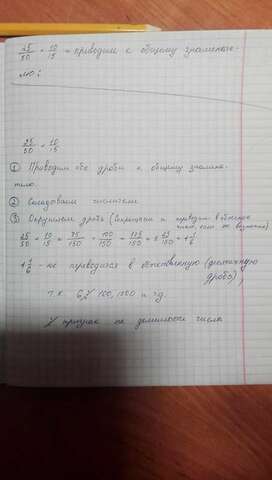 25/50 + 10/15 = приводим к общему знаменате-
лю:
25/50 + 10/15
① Приводим обе дроби к общему знамена-
телю.
② Складываем числители
③ Округляем дробь (сокращаем и переводим в
число, если это возможно)
25/50 + 10/15 = 75/150 + 100/150 = 175/150 = 1 25/150 = 1 1/6
1 1/6 - не переводится в (десятичную
дробь),
т.к 6 100, 1000 и т.д.
признак не делимости числа